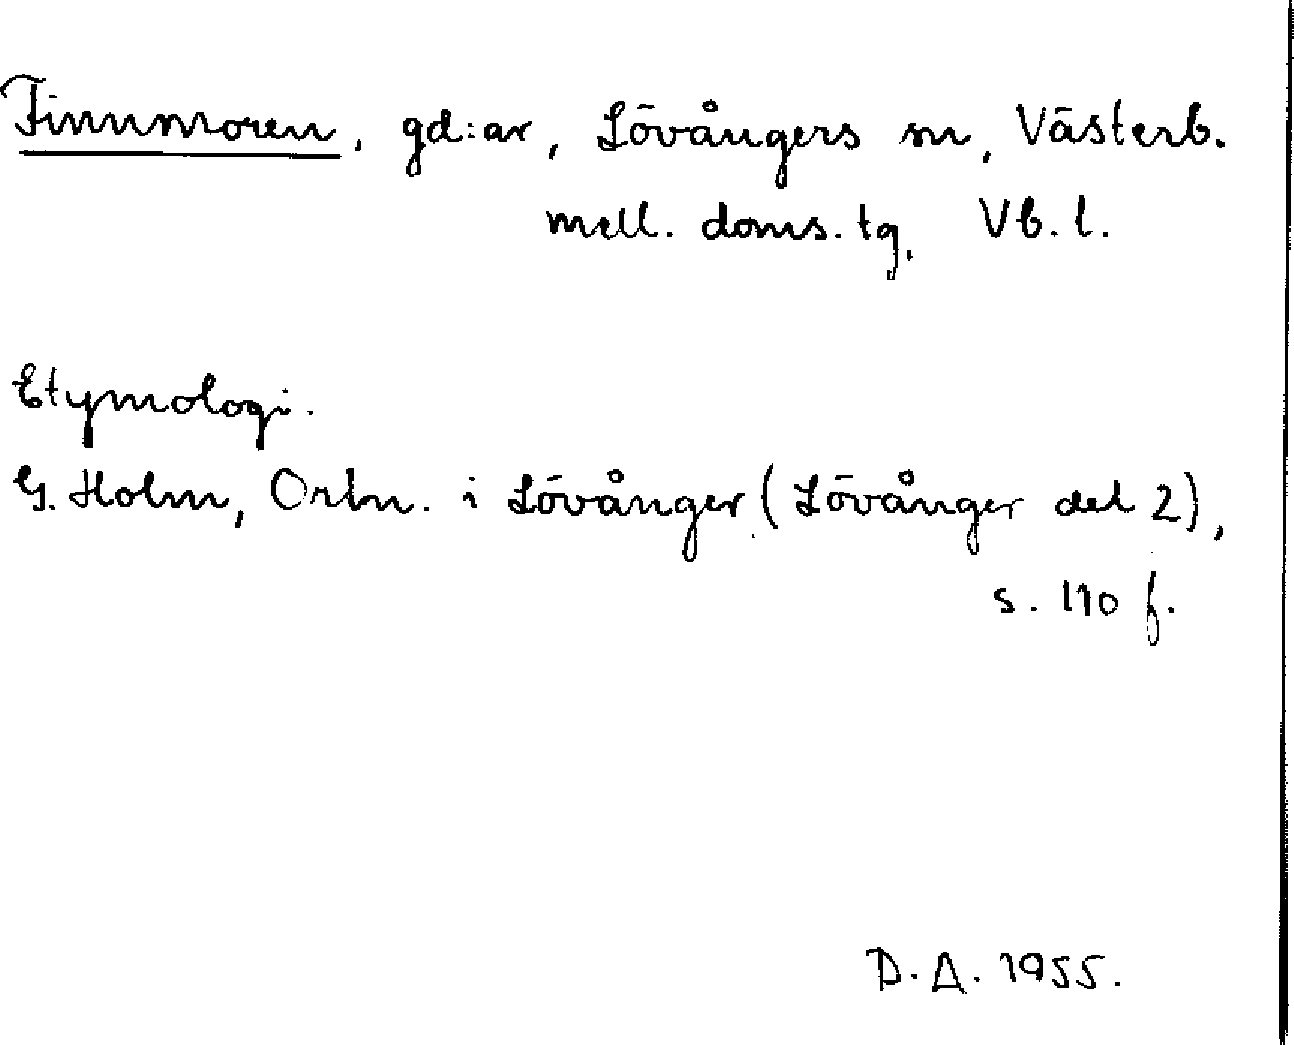 Finnmoren, gd:ar, Lövångers sn, Västerb.
mell. doms. tg, Vb. l.
Etymologi.
G. Holm, Ortn. i Lövånger (Lövånger del 2),
s. 110 f.
D. A. 1955.